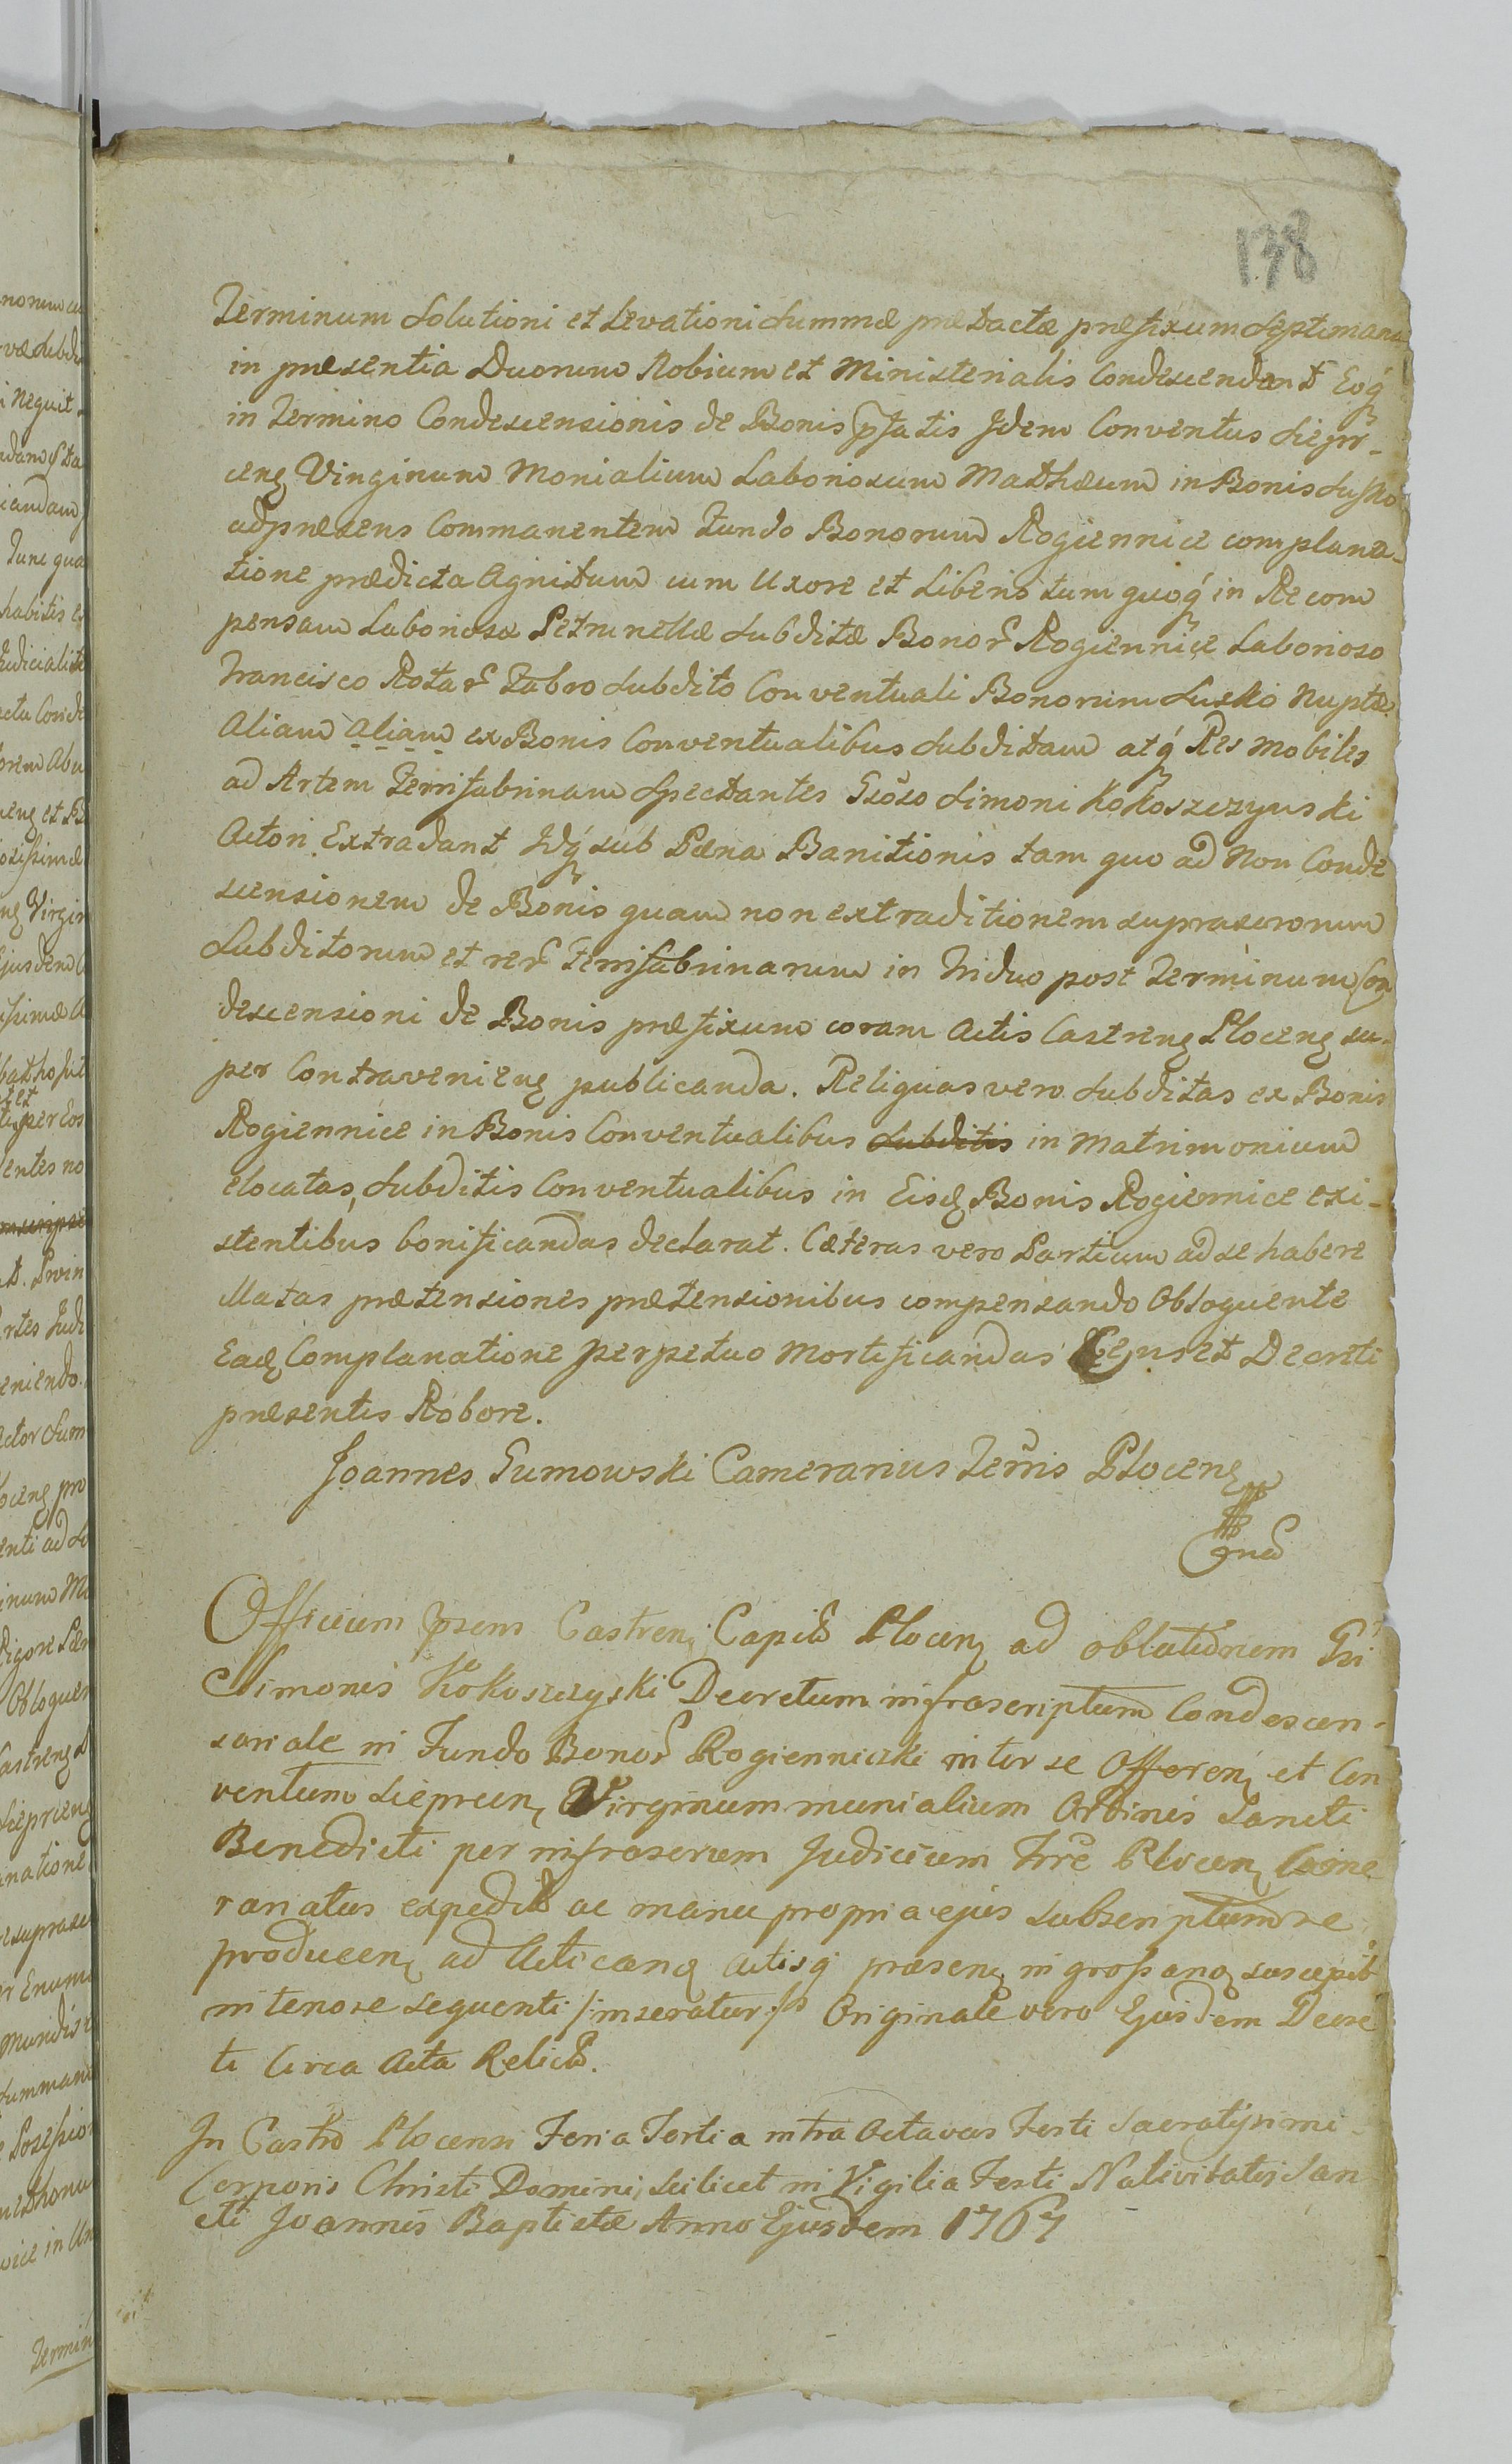 138
Terminum Solutioni et Levationi Summæ prætactæ præfixum Septimana
in præsentia Duorum Nobium et Ministerialis Condescendant Eoq́
in Termino Condescensionis de Bonis pftatis Jdem Conventus Sierp-
ceñ Virginum Monialium Laboriosum Mathæum in Bonis Susko
adpræsens Commanentem Fundo Bonorum Rogiennice complana-
tione prædicta Agnitum cum Uxore et Liberis tum quoq́ in Recom
pensam Laboriosæ Petrunellæ Subditæ Bonor Rogiennice Laborioso
Francisco Rotar Fabro Subdito Conventuali Bonorum Susko Nuptæ
Aliam Aliam ex Bonis Conventualibus Subditam atq́ Res Mobiles
ad Artem Ferrifabrinam Spectantes Gsoso Simoni Kokoszczynski
Actori Extradant Idq́ sub Pæna Banitionis tam quo ad Non Conde
scensionem de Bonis quam non extraditionem suprascrorum
Subditorum et rer Ferrifabrinarum in Triduo post Terminum Con
descensioni de Bonis præfixum coram Actis Castreñ Ploceñ su-
per Contravenieñ publicanda. Reliquas vero Subditas ex Bonis
Rogiennice in Bonis Conventualibus Subditis in Matrimonium
elocatas, Subditis Conventualibus in Eisd Bonis Rogiennice exi-
stentibus bonificandas declarat. Cæteras vero Partium ad se habere
Natas prætensiones prætensionibus compensando Obloquente
Ead Complanatione perpetuo Mortificandas Censet Decreti
præsentis Robore.
Joannes Gumowski Camerarius Terris Ploceñ
Officium præns Castreñ Capitt Ploceñ ad oblationem Gsi
Simonis Kokoszczyski Decretum infrascriptum Condescen-
soriale in Fundo Bonor Rogienniczki inter se Offereñ et Con
ventum Sierpceñ Virginum munialium Ordinis Sancti
Benedicti per infrascrum Judicium Trre Ploceñ Came
rariatus expeditt ac manu propria ejus subscriptum se
produceñ ad Acticand actisq præseñ ingrossand suscepit
in tenore sequenti /:inseratur:/ Originale vero Ejusdem Decre
ti Circa Acta Relictt.
In Castro Plocensi Feria Tertia intra Octavas Festi Sacratissimi
Corporis Christi Domini, Scilicet in Vigilia Festi Nativitatis San
cti Joannis Baptistæ Anno Ejusdem 1767